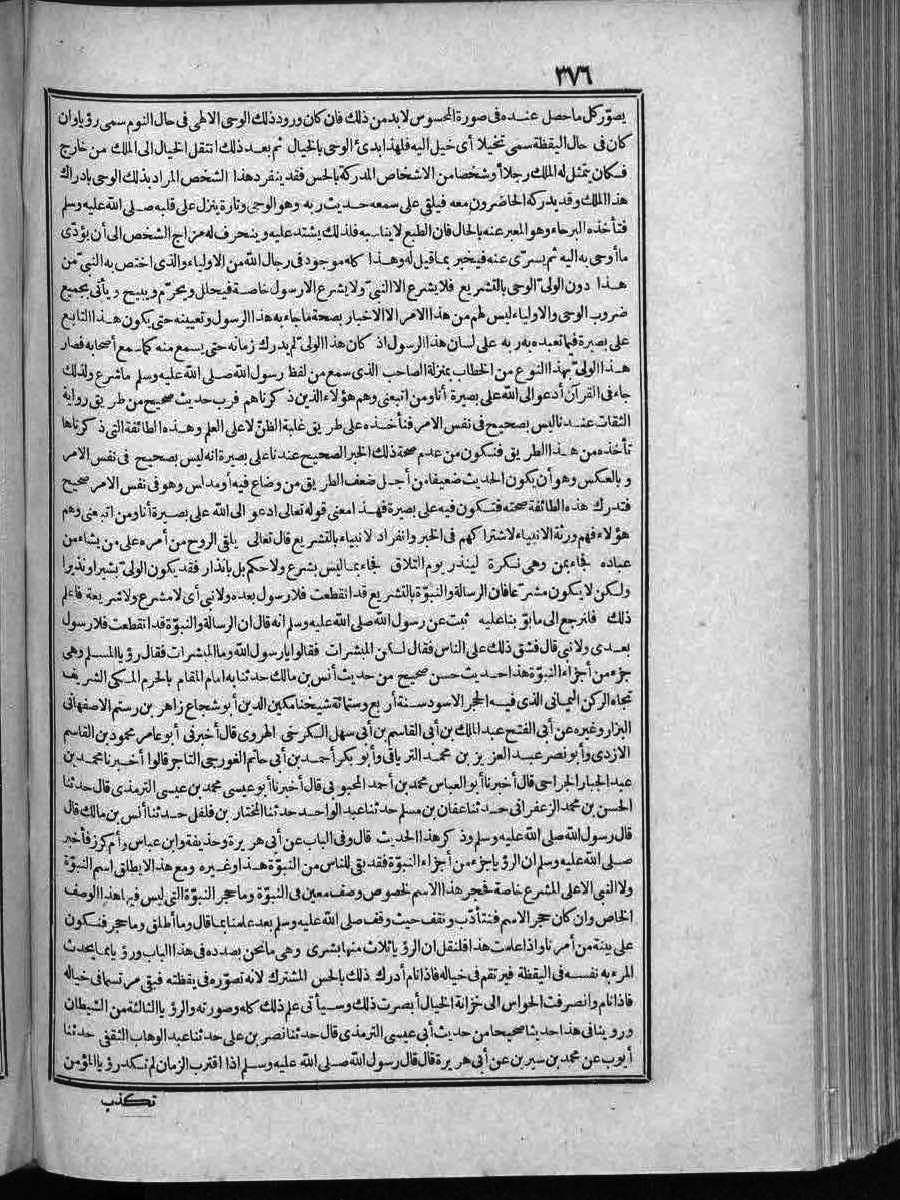 ٣٧٦
يصوّر كل ما حصل عنده فى صورة المحسوس لابد من ذلك فان كان ورود ذلك الوحى الالهى فى حال النوم سمى رؤيا وان
كان فى حال اليقظة سمى تخيلا أى خيل اليه فلهذا بدئ الوحى بالخيال ثم بعد ذلك انتقل الخيال الى الملك من خارج
فكان يتمثل له الملك رجلا أو شخصا من الاشخاص المدركة بالحس فقد ينفرد هذا الشخص المراد بذلك الوحى بادراك
هذا الملك وقد يدركه الحاضرون معه فيلقى على سمعه حديث ربه وهو الوحى وتارة ينزل على قلبه صلى الله عليه وسلم
فتأخذه البرحاء وهو المعبر عنه بالحال فان الطبع لا يناسبه فلذلك يشتد عليه وينحرف له مزاج الشخص الى أن يؤدّى
ما أوحى به اليه ثم يسرّى عنه فيخبر بما قيل له وهذا كله موجود فى رجال الله من الاولياء والذى اختص به النبىّ من
هذا دون الولىّ الوحى بالتشريع فلا يشرع الا النبىّ ولا يشرع الا رسول خاصة فيحلل ويحرّم ويبيح ويأتى بجميع
ضروب الوحى والاولياء ليس لهم من هذا الامر الا الاخبار بصحة ما جاء به هذا الرسول وتعيينه حتى يكون هذا التابع
على بصيرة فيما تعبده به ربه على لسان هذا الرسول اذ كان هذا الولىّ لم يدرك زمانه حتى يسمع منه كما سمع أصحابه فصار
هذا الولىّ بهذا النوع من الخطاب بمنزلة الصاحب الذى سمع من لفظ رسول الله صلى الله عليه وسلم ما شرع ولذلك
جاء فى القرآن أدعو الى الله على بصيرة أنا ومن اتبعنى وهم هؤلاء الذين ذكرناهم فرب حديث صحيح من طريق رواية
الثقات عندنا ليس بصحيح فى نفس الامر فنأخذه على طريق غلبة الظنّ لا على العلم وهذه الطائفة التى ذكرناها
تأخذه من هذا الطريق فتكون من عدم صحة ذلك الخبر الصحيح عندنا على بصيرة انه ليس بصحيح فى نفس الامر
وبالعكس وهو أن يكون الحديث ضعيفا من أجل ضعف الطريق من وضاع فيه أو مدلس وهو فى نفس الامر صحيح
فتدرك هذه الطائفة صحته فتكون فيه على بصيرة فهذا معنى قوله تعالى ادعو الى الله على بصيرة أنا ومن اتبعنى وهم
هؤلاء فهم ورثة الانبياء لاشتراكهم فى الخبر وانفراد الانبياء بالتشريع قال تعالى يلقى الروح من أمره على من يشاء من
عباده فجاء بمن وهى نكرة لينذر يوم التلاق فجاء بما ليس بشرع ولا حكم بل بانذار فقد يكون الولىّ بشيرا ونذيرا
ولكن لا يكون مشرّعا فان الرسالة والنبوّة بالتشريع قد انقطعت فلا رسول بعده ولا نبى أى لا مشرع ولا شريعة فاعلم
ذلك فلنرجع الى ما بوّبنا عليه ثبت عن رسول الله صلى الله عليه وسلم انه قال ان الرسالة والنبوّة قد انقطعت فلا رسول
بعدى ولا نبى قال فشق ذلك على الناس فقال لكن المبشرات فقالوا يا رسول الله وما المبشرات فقال رؤيا المسلم وهى
جزء من أجزاء النبوّة هذا حديث حسن صحيح من حديث أنس بن مالك حدثنا به امام المقام بالحرم المكى الشريف
تجاه الركن اليمانى الذى فيه الحجر الاسود سنة أربع وستمائة شيخنا مكين الدين أبو شجاع زاهر بن رستم الاصفهانى
البزار وغيره عن أبى الفتح عبد الملك بن أبى القاسم بن أبى سهل الكرخى الهروى قال أخبرنى أبو عامر محمود بن القاسم
الازدى وأبو نصر عبد العزيز بن محمد الترياقى وأبو بكر أحمد بن أبى حاتم الغورجى التاجر قالوا أخبرنا محمد بن
عبد الجبار الجراحى قال أخبرنا أبو العباس محمد بن أحمد المحبوبى قال أخبرنا أبو عيسى محمد بن عيسى الترمذى قال حدثنا
الحسن بن محمد الزعفرانى حدثنا عفان بن مسلم حدثنا عبد الواحد حدثنا المختار بن فلفل حدثنا أنس بن مالك قال
قال رسول الله صلى الله عليه وسلم وذكر هذا الحديث قال وفى الباب عن أبى هريرة وحذيفة وابن عباس وأم كرز فأخبر
صلى الله عليه وسلم ان الرؤيا جزء من أجزاء النبوّة فقد بقى للناس من النبوّة هذا وغيره ومع هذا لا يطلق اسم النبوّة
ولا النبى الا على المشرع خاصة فحجر هذا الاسم لخصوص وصف معين فى النبوّة وما حجر النبوّة التى ليس فيها هذا الوصف
الخاص وان كان حجر الاسم فنتأدّب ونقف حيث وقف صلى الله عليه وسلم بعد علمنا بما قال وما أطلق وما حجر فنكون
على بينة من أمرنا واذا علمت هذا فلنقل ان الرؤيا ثلاث منها بشرى وهى ما نحن بصدده فى هذا الباب ورؤيا مما يحدث
المرء به نفسه فى اليقظة فيرتقم فى خياله فاذا نام أدرك ذلك بالحس المشترك لانه تصوّره فى يقظته فبقى مرتسما فى خياله
فاذا نام وانصرفت الحواس الى خزانة الخيال أبصرت ذلك وسيأتى علم ذلك كله وصورته والرؤيا الثالثة من الشيطان
وروينا فى هذا حديثا صحيحا من حديث أبى عيسى الترمذى قال حدثنا نصر بن على حدثنا عبد الوهاب الثقفى حدثنا
أيوب عن محمد بن سيرين عن أبى هريرة قال قال رسول الله صلى الله عليه وسلم اذا اقترب الزمان لم تكد رؤيا المؤمن
تكذب